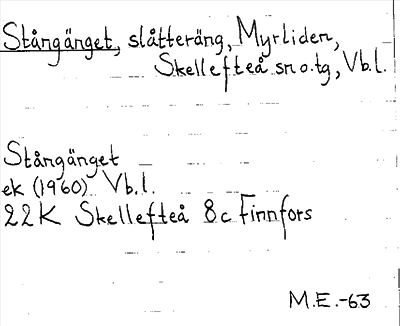 Stångänget, slåtteräng, Myrliden,
Skellefteå sn o. tg, Vb.l.
Stångänget
ek (1960) Vb.l.
22K Skellefteå 8c Finnfors
M.E.-63